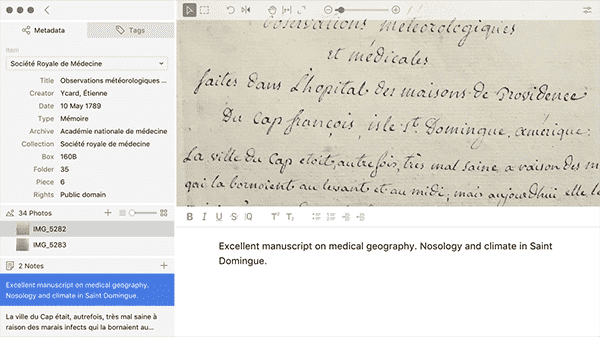 Metadata
Tags
Item
Société Royale de Médecine
Title Observations météorologiques ...
Creator Ycard, Étienne
Date 10 May 1789
Type Mémoire
Archive Académie nationale de médecine
Collection Société royale de médecine
Box 160B
Folder 35
Piece 6
Rights Public domain
34 Photos
IMG_5282
IMG_5283
2 Notes
Excellent manuscript on medical geography.
Nosology and climate in Saint Domingue.
La ville du Cap était, autrefois, très mal saine à
raison des marais infects qui la bornaient au...
Observations météorologiques
et médicales
faites dans L'hopital des maisons de Providence
Du Cap françois, isle St. Domingue, amérique.
La ville du Cap etoit, autrefois, très mal saine a raison des m
qui la bornoient au levant et au midi, mais aujourdhui elle le
B I U S Q T T
Excellent manuscript on medical geography. Nosology and climate in Saint
Domingue.